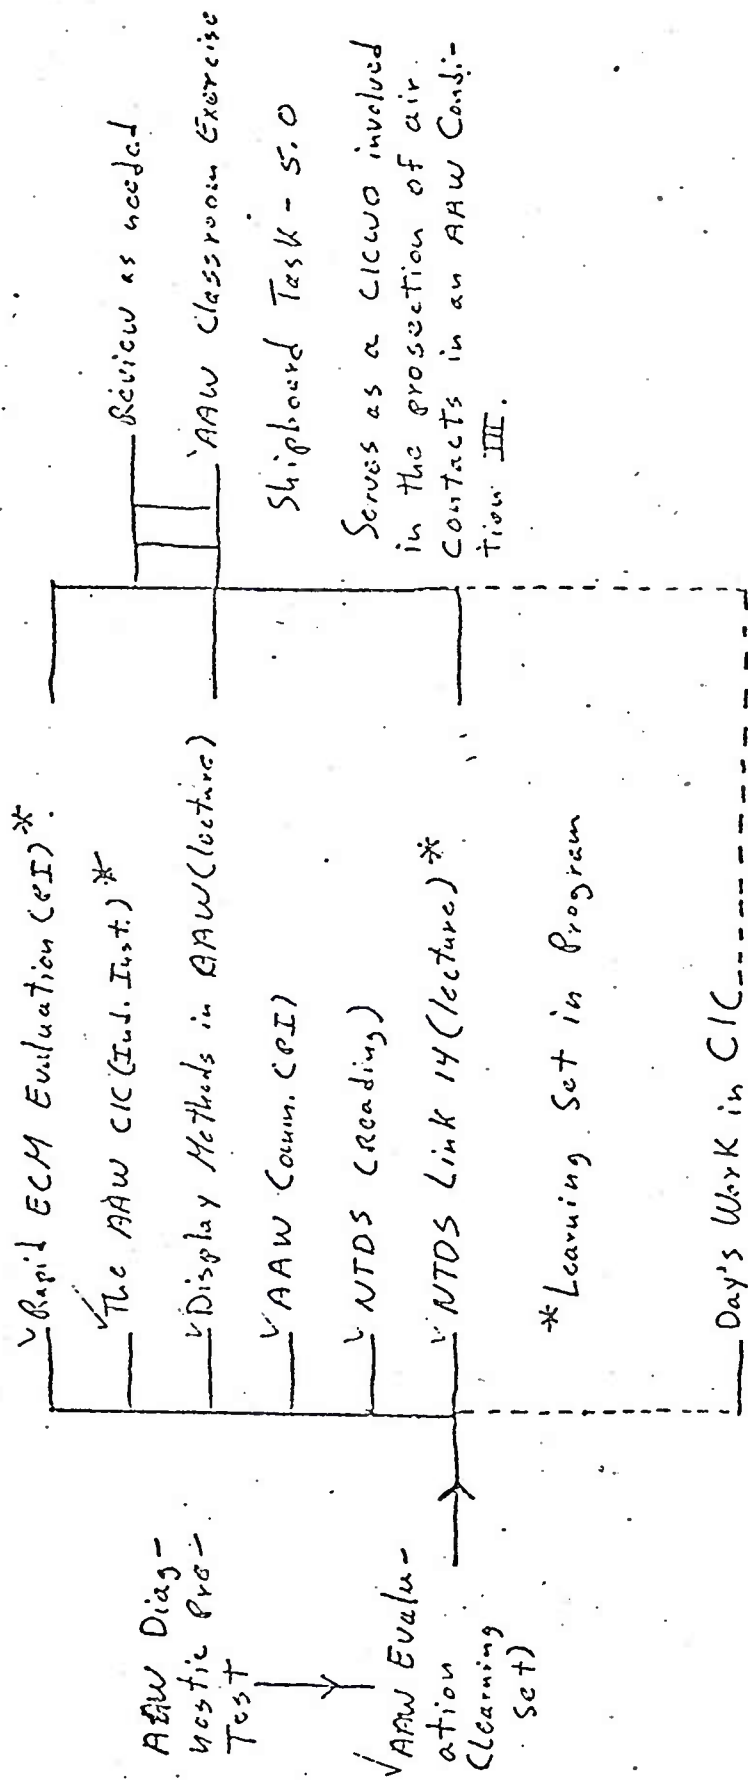 AAW Diag-
nostic Pre-
Test
✓AAW Evalu-
ation
(learning
set)
✓Rapid ECM Evaluation (PI)*
✓The AAW CIC (Ind. Inst.)*
✓Display Methods in AAW (lecture)
✓AAW Comm. (PI)
✓NTDS (Reading)
✓NTDS Link 14 (lecture)*
*Learning Set in Program
Day's Work in CIC
Review as needed
✓AAW Classroom Exercise
Shipboard Task - 5.0
Serves as a CICWO involved
in the prosection of air
contacts in an AAW Condi-
tion III.